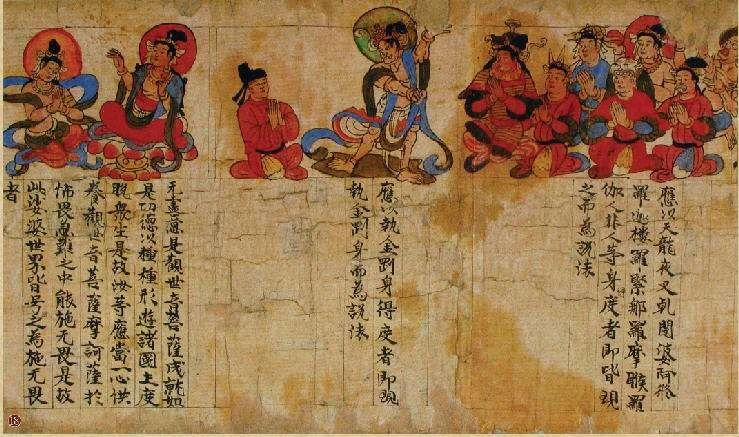 應以天龍夜叉乹闥婆阿脩
羅迦樓羅緊那羅摩睺羅
伽人非人等身度者即皆現
之而為說法
應以執金剛身得度者即現
執金剛身而為說法
无盡意是觀世音菩薩成就如
是功德以種種形遊諸國土度
脫衆生是故汝等應當一心供
養觀世音菩薩摩訶薩於
怖畏急難之中能施无畏是故
此娑婆世界皆号之為施无畏
者